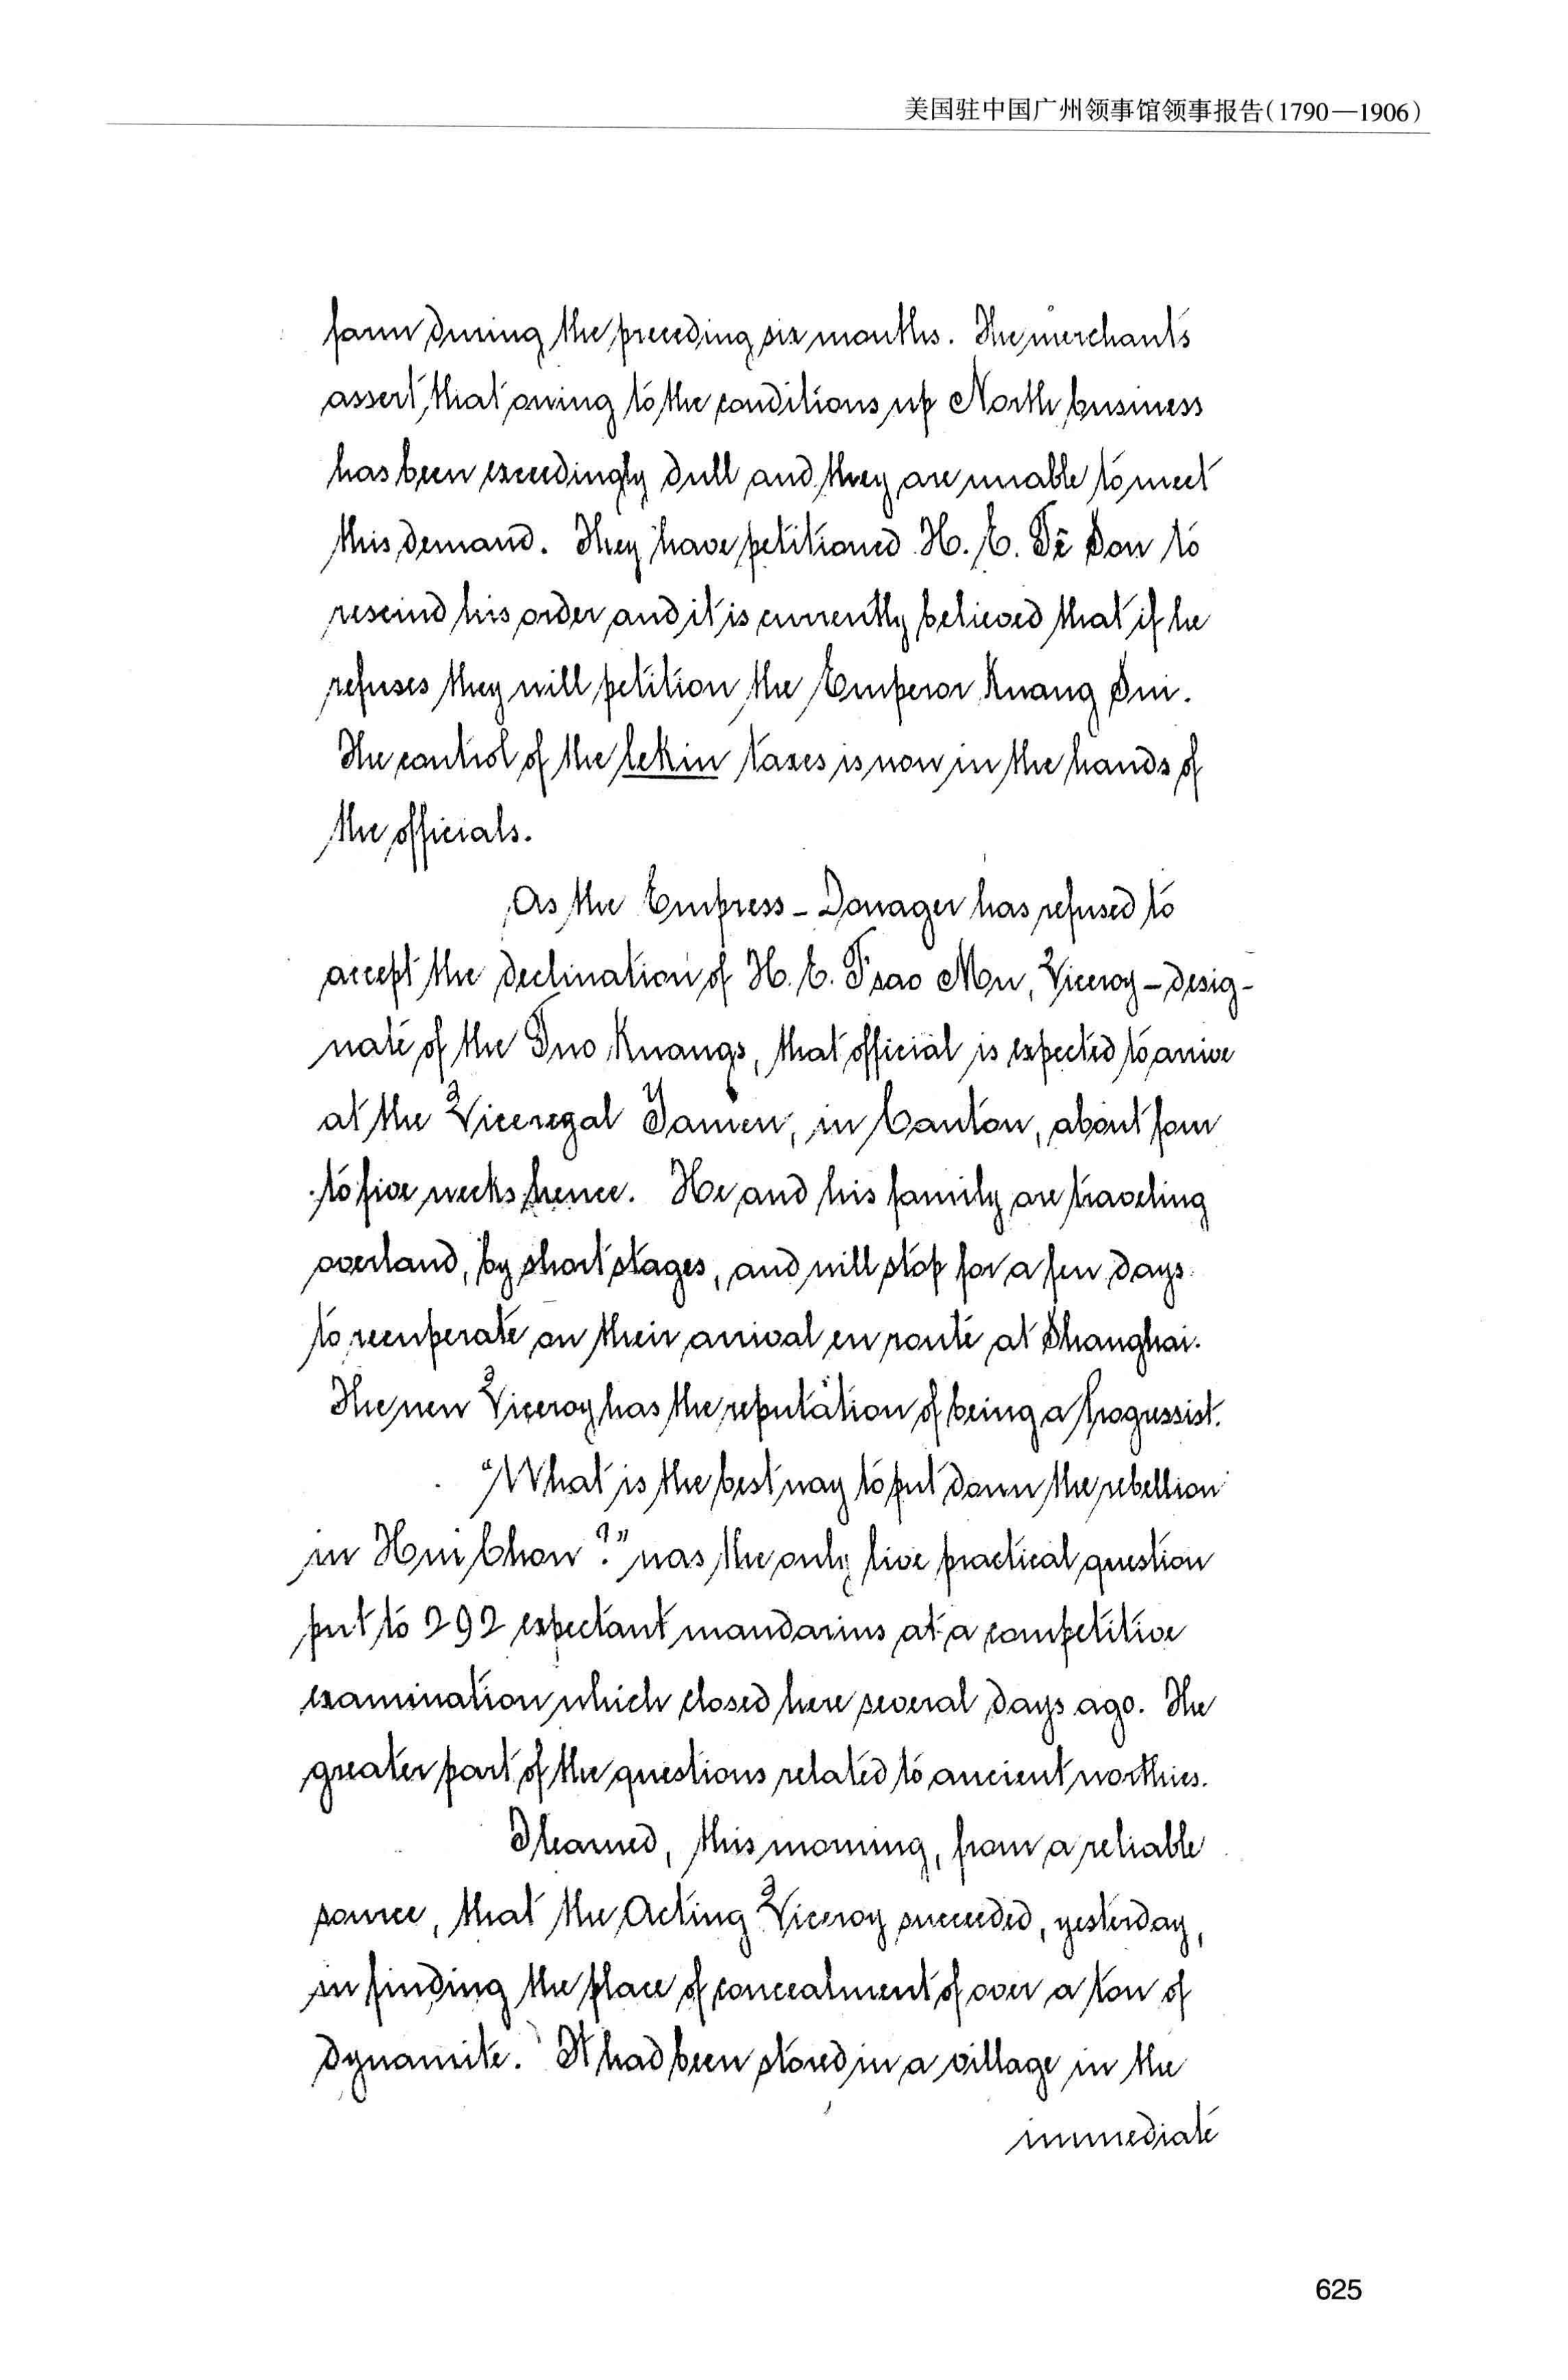 美国驻中国广州领事馆领事报告(1790—1906)
farm during the preceding six months. The merchants
assert that owing to the conditions up North business
has been exceedingly dull and they are unable to meet
this demand. They have petitioned H. E. Tê Sou to
rescind his order and it is currently believed that if he
refuses they will petition the Emperor Kuang Sui.
The control of the lekin taxes is now in the hands of
the officials.
As the Empress-Dowager has refused to
accept the declination of H. E. T'sao Mu, Viceroy-desig-
nate of the Two Kuangs, that official is expected to arrive
at the Viceregal Yamen, in Canton, about four
to five weeks hence. He and his family are traveling
overland, by short stages, and will stop for a few days
to recuperate on their arrival en route at Shanghai.
The new Viceroy has the reputation of being a Progressist.
"What is the best way to put down the rebellion
in Hui Chow?" was the only live practical question
put to 292 expectant mandarins at a competitive
examination which closed here several days ago. The
greater part of the questions related to ancient worthies.
I learned, this morning, from a reliable
source, that the Acting Viceroy succeeded, yesterday,
in finding the place of concealment of over a ton of
dynamite. It had been stored in a village in the
immediate
625